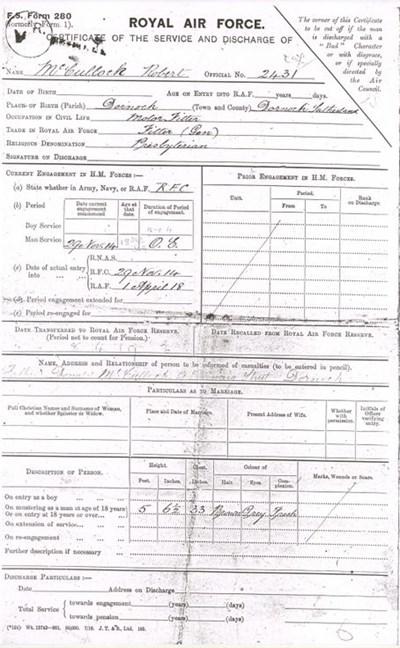 F.S. Form 280
(formerly Form 1).
ROYAL AIR FORCE.
CERTIFICATE OF THE SERVICE AND DISCHARGE OF
The corner of this Certificate
to be cut off if the man
is discharged with a
"Bad" Character
or with disgrace,
or if specially
directed by
the Air
Council.
NAME McCullock Robert OFFICIAL NO. 2431
DATE OF BIRTH AGE ON ENTRY INTO R.A.F. years, days.
PLACE OF BIRTH (Parish) Dornoch (Town and County) Dornoch Sutherland
OCCUPATION IN CIVIL LIFE Motor Fitter
TRADE IN ROYAL AIR FORCE Fitter (Gen)
RELIGIOUS DENOMINATION Presbyterian
SIGNATURE ON DISCHARGE
CURRENT ENGAGEMENT IN H.M. FORCES:—
(a) State whether in Army, Navy, or R.A.F. RFC
(b) Period
Date current engagement commenced
Age at that date.
Duration of Period of engagement.
Boy Service
Man Service 29 Nov. 14 D.E.
(c) Date of actual entry into
R.N.A.S.
R.F.C. 29 Nov. 14
R.A.F. 1 April 18
(d) Period engagement extended for
(e) Period re-engaged for
PRIOR ENGAGEMENT IN H.M. FORCES:—
Unit.
Period.
From To
Rank on Discharge.
DATE TRANSFERRED TO ROYAL AIR FORCE RESERVE.
(Period not to count for Pension.)
DATE RECALLED FROM ROYAL AIR FORCE RESERVE.
NAME, ADDRESS and RELATIONSHIP of person to be informed of casualties (to be entered in pencil).
McCullock Dornoch
PARTICULARS AS TO MARRIAGE.
Full Christian Names and Surname of Woman, and whether Spinster or Widow.
Place and Date of Marriage.
Present Address of Wife.
Whether with permission.
Initials of Officer verifying entry.
DESCRIPTION OF PERSON.
Height. Chest. Colour of
Feet. Inches. Inches. Hair. Eyes. Complexion.
Marks, Wounds or Scars.
On entry as a boy
On mustering as a man at age of 18 years
Or on entry at 18 years or over 5 6½ 33 Brown Grey Fresh
On extension of service
On re-engagement
Further description if necessary
DISCHARGE PARTICULARS:—
Date Address on Discharge
Total Service
towards engagement (years) (days)
towards pension (years) (days)